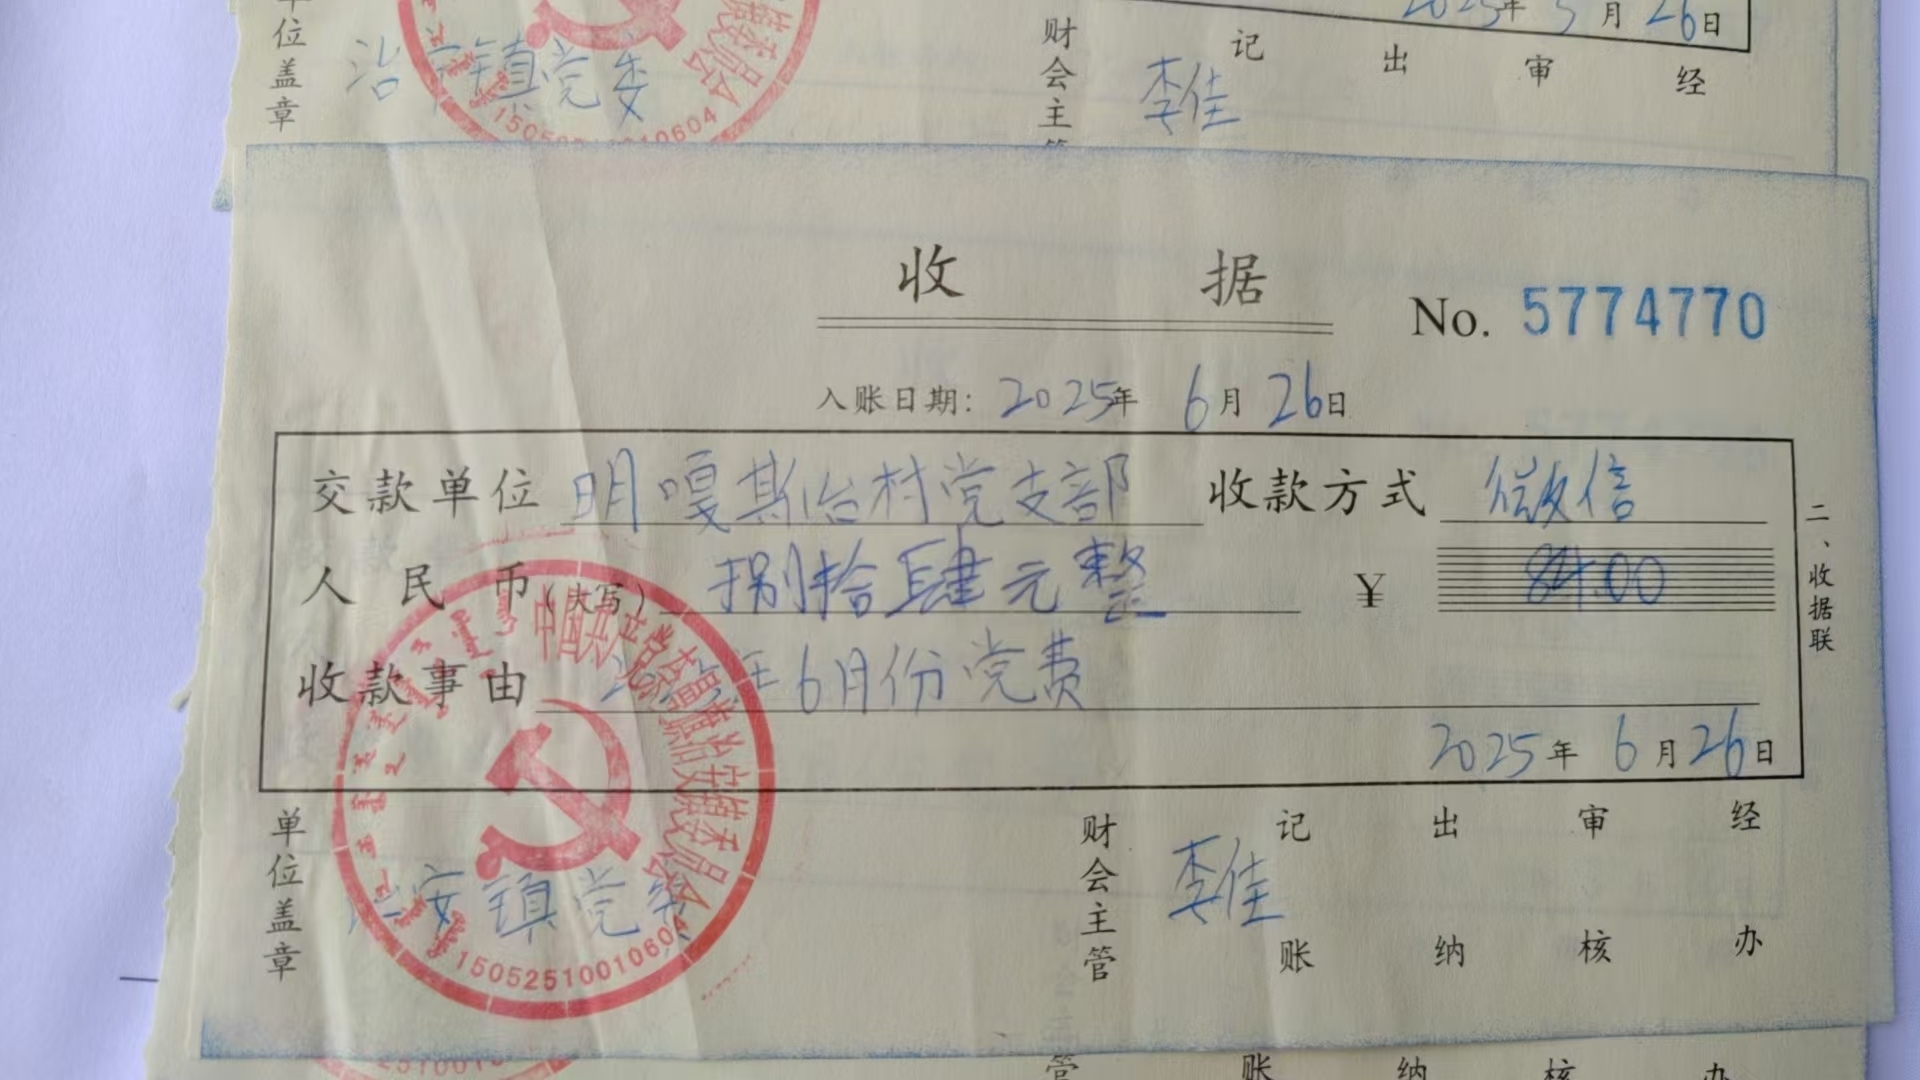 2025年5月26日
单位盖章 治安镇党委
财会主管 李佳 记 出 审 经
收 据
No. 5774770
入账日期：2025年 6月 26日
交款单位 明嘎斯台村党支部 收款方式 微信
人民币（大写） 捌拾肆元整 ¥ 84.00
收款事由 2025年6月份党费
2025年 6月26日
二、收据联
单位盖章 治安镇党委 财会主管 李佳 记账 出纳 审核 经办
中国共产党奈曼旗治安镇委员会
15052510010604
管 账 纳 核 办